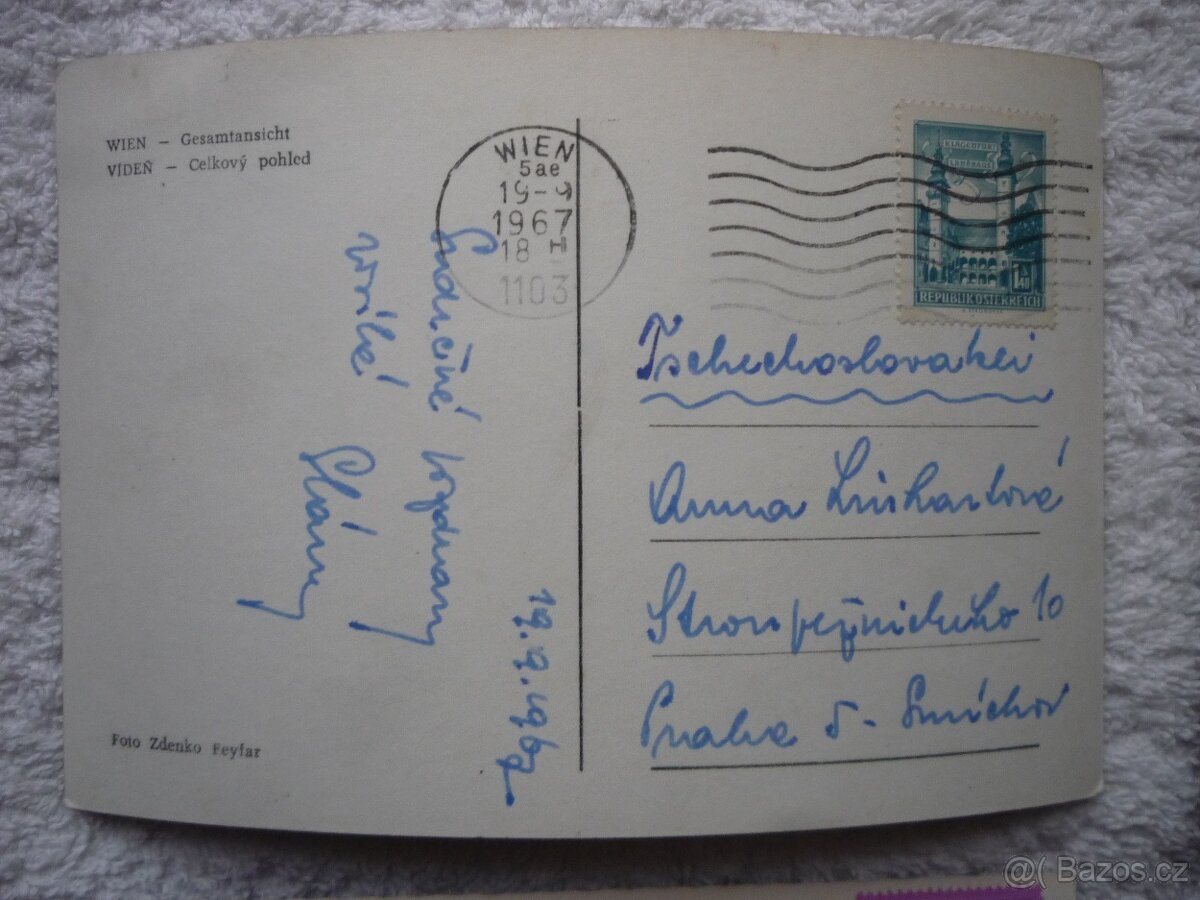 WIEN – Gesamtansicht
VÍDEŇ – Celkový pohled
WIEN
5ae
19-9
1967
18 H
1103
KLAGENFURT
LANDHAUS
1.40
REPUBLIK ÖSTERREICH
19.9.1967
Srdečné pozdravy
Tschechoslovakei
Anna
Stroupežnického 10
Praha 5 - Smíchov
Foto Zdenko Feyfar
@( Bazos.cz